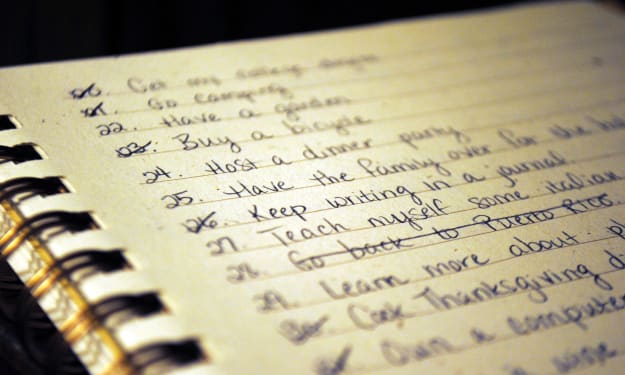 20. Get my college degree
21. Go camping
22. Have a garden
23. Buy a bicycle
24. Host a dinner party
25. Have the family over for the
26. Keep writing in a journal
27. Teach myself some italian
28. Go back to Puerto Rico.
29. Learn more about
30. Cook Thanksgiving
31. Own a computer